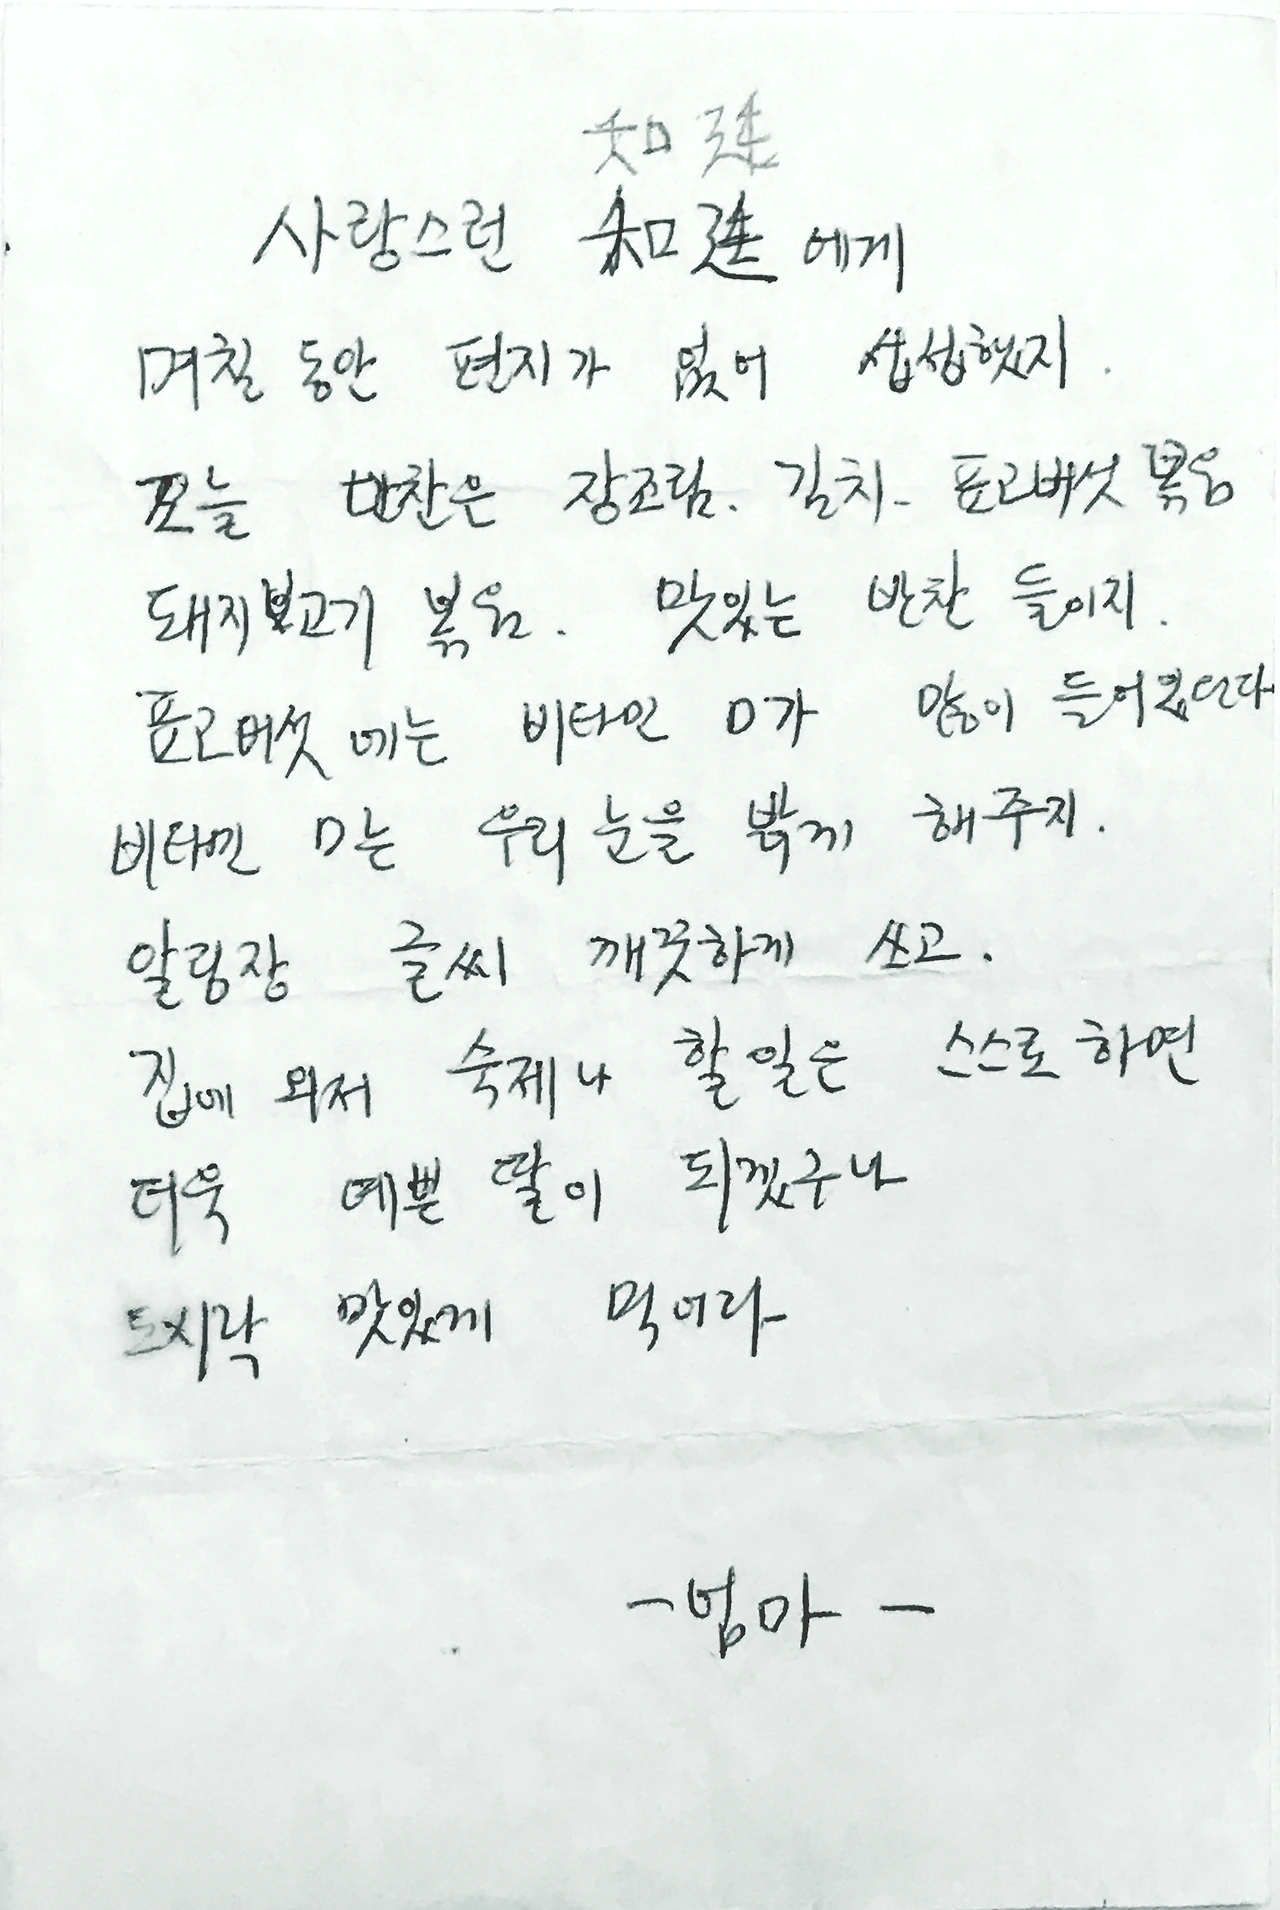 知延
사랑스런 知延에게
며칠 동안 편지가 없어 섭섭했지.
오늘 반찬은 장조림. 김치- 표고버섯 볶음
돼지불고기 볶음. 맛있는 반찬 들이지.
표고버섯에는 비타민 D가 많이 들어있단다
비타민 D는 우리 눈을 밝게 해주지.
알림장 글씨 깨끗하게 쓰고.
집에 와서 숙제나 할일은 스스로 하면
더욱 예쁜 딸이 되겠구나
도시락 맛있게 먹어라
- 엄마 -